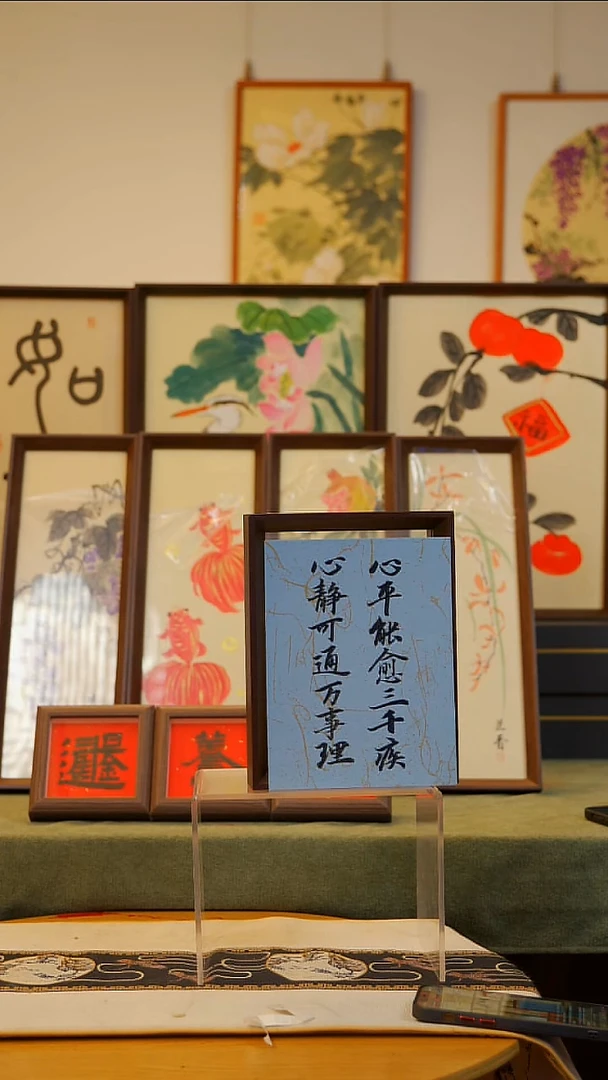 心平能愈三千疾
心静可通万事理
如
福